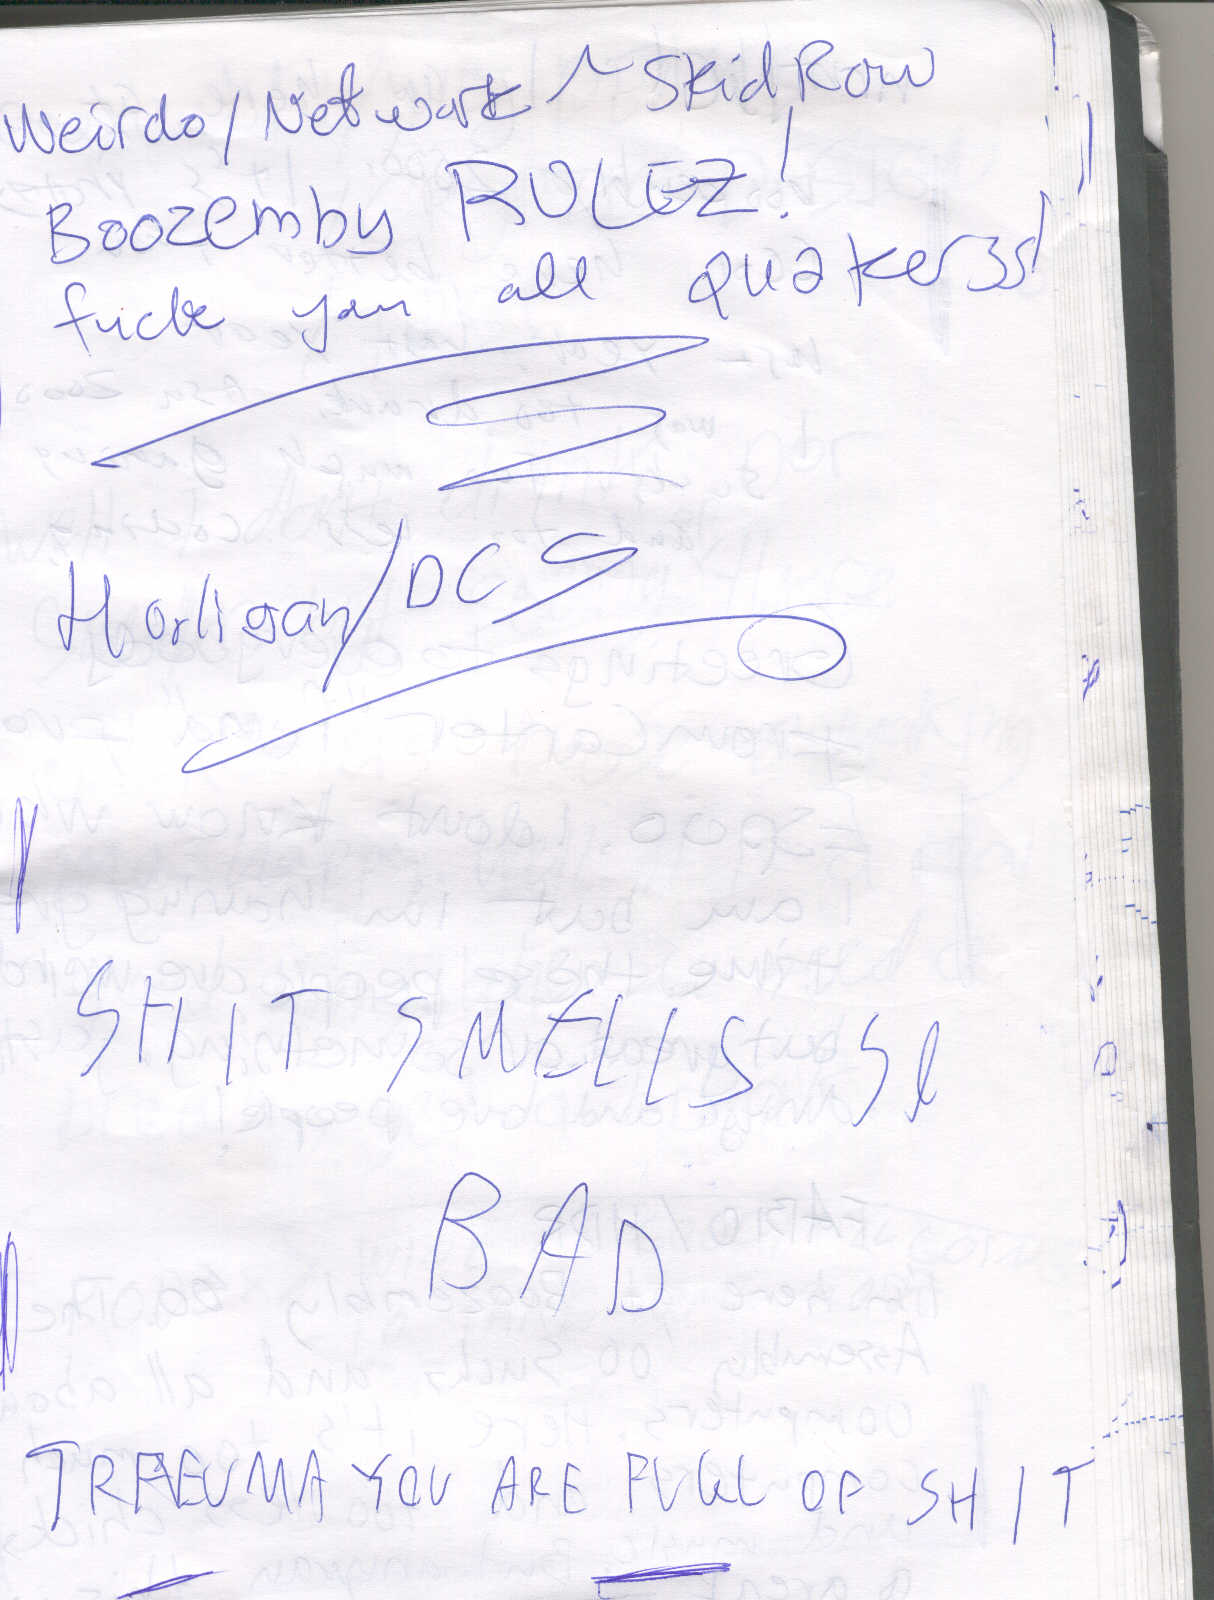 Weirdo/Network ~ SkidRow
Boozembly RULEZ!
fuck you all quakers
Hooligan/DCS
SHIT SMELLS SO
BAD
TRAEUMA YOU ARE FULL OF SHIT